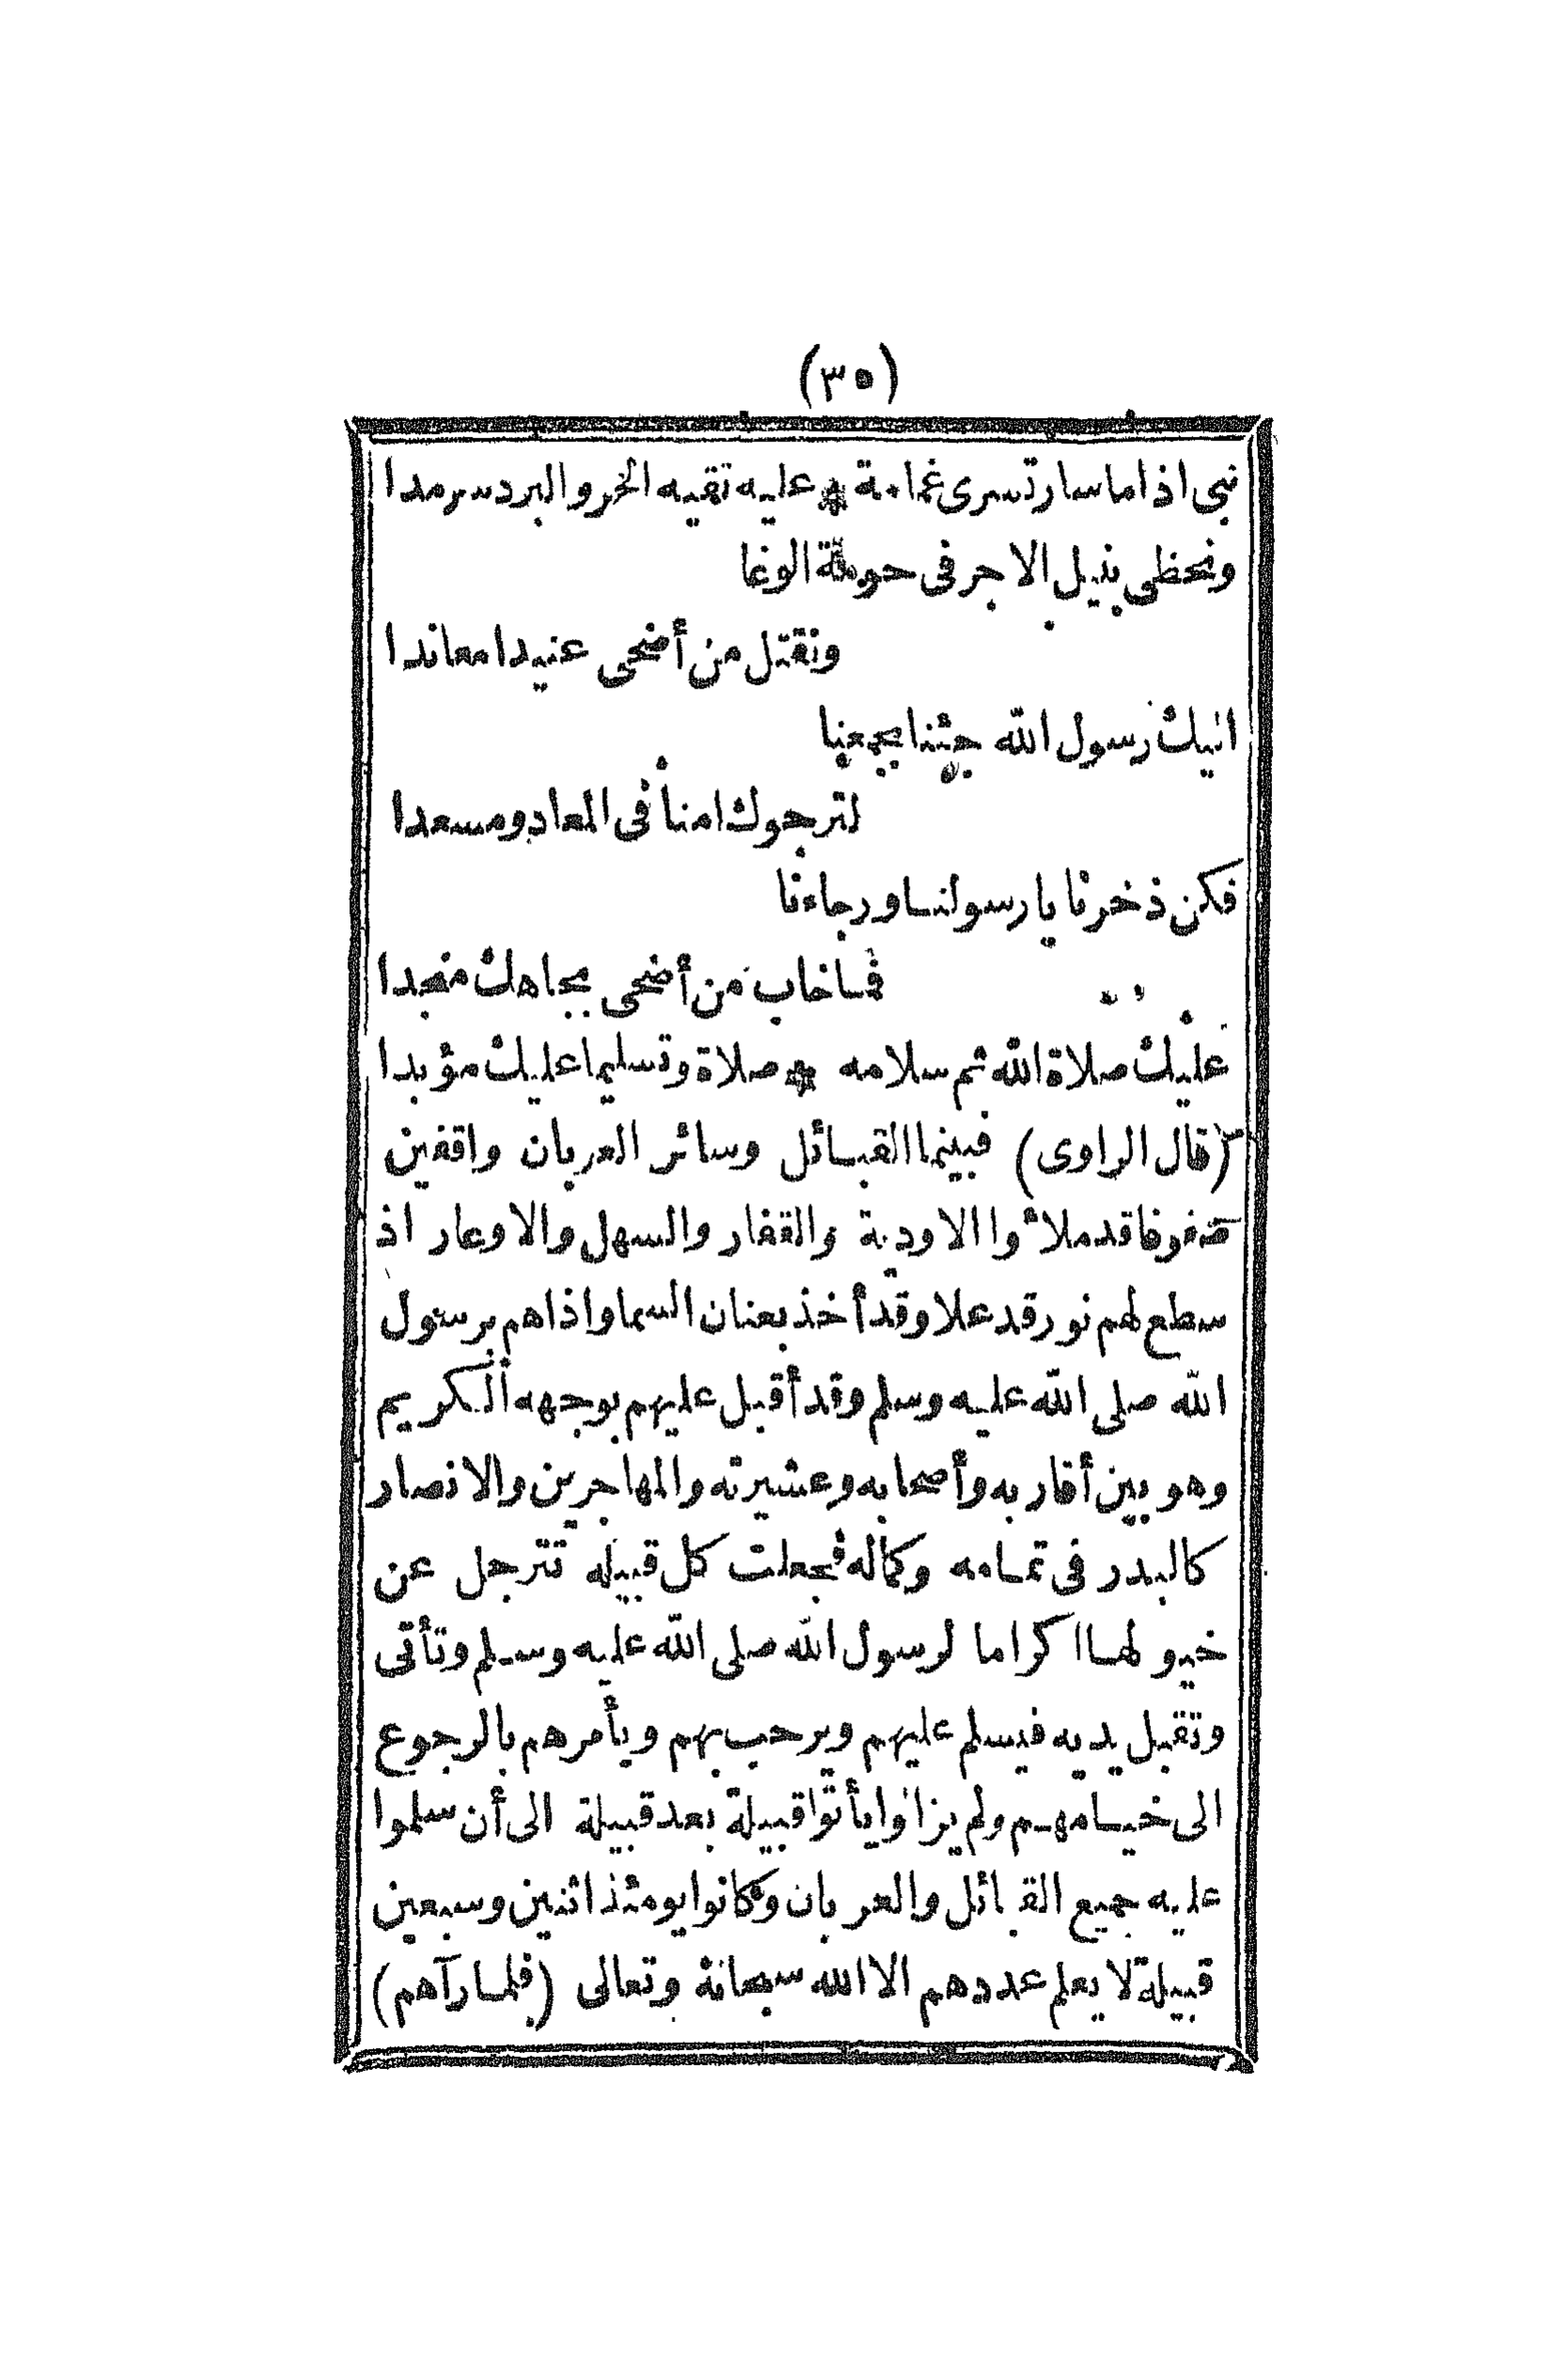 (٣٥)
نبى اذا ما سار تسرى غمامة * عليه تقيه الحر والبرد سرمدا
ونحظى بنيل الاجر فى حومة الوغا
ونقتل من أضحى عنيدا معاندا
اليك رسول الله جئنا بجمعنا
لترجوك امنا فى المعاد ومسعدا
فكن ذخرنا يا رسولنا ورجاءنا
فما خاب من أضحى بجاهك منجدا
عليك صلاة الله ثم سلامه * صلاة وتسليما عليك مؤبدا
(قال الراوى) فبينما القبائل وسائر العربان واقفين
صفوفا قد ملأوا الاودية والقفار والسهل والاوعار اذ
سطع لهم نور قد علا وقد أخذ بعنان السما واذا هم برسول
الله صلى الله عليه وسلم وقد أقبل عليهم بوجهه الكريم
وهو بين أقاربه وأصحابه وعشيرته والمهاجرين والانصار
كالبدر فى تمامه وكماله فجعلت كل قبيله تترجل عن
خيولها اكراما لرسول الله صلى الله عليه وسلم وتأتى
وتقبل يديه فيسلم عليهم ويرحب بهم ويأمرهم بالرجوع
الى خيامهم ولم يزالوا يأتوا قبيلة بعد قبيلة الى أن سلموا
عليه جميع القبائل والعربان وكانوا يومئذ اثنين وسبعين
قبيلة لا يعلم عددهم الا الله سبحانه وتعالى (فلما رآهم)